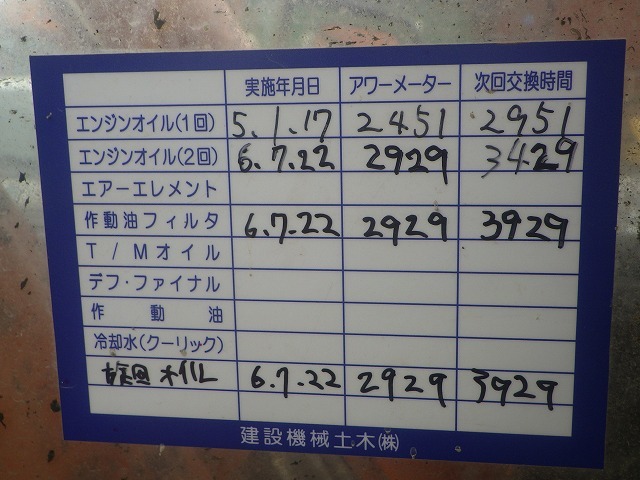 実施年月日 アワーメーター 次回交換時間
エンジンオイル(1回) 5.1.17 2451 2951
エンジンオイル(2回) 6.7.22 2929 3429
エアーエレメント
作動油フィルタ 6.7.22 2929 3929
T/Mオイル
デフ・ファイナル
作動油
冷却水(クーリック)
旋回オイル 6.7.22 2929 3929
建設機械土木(株)